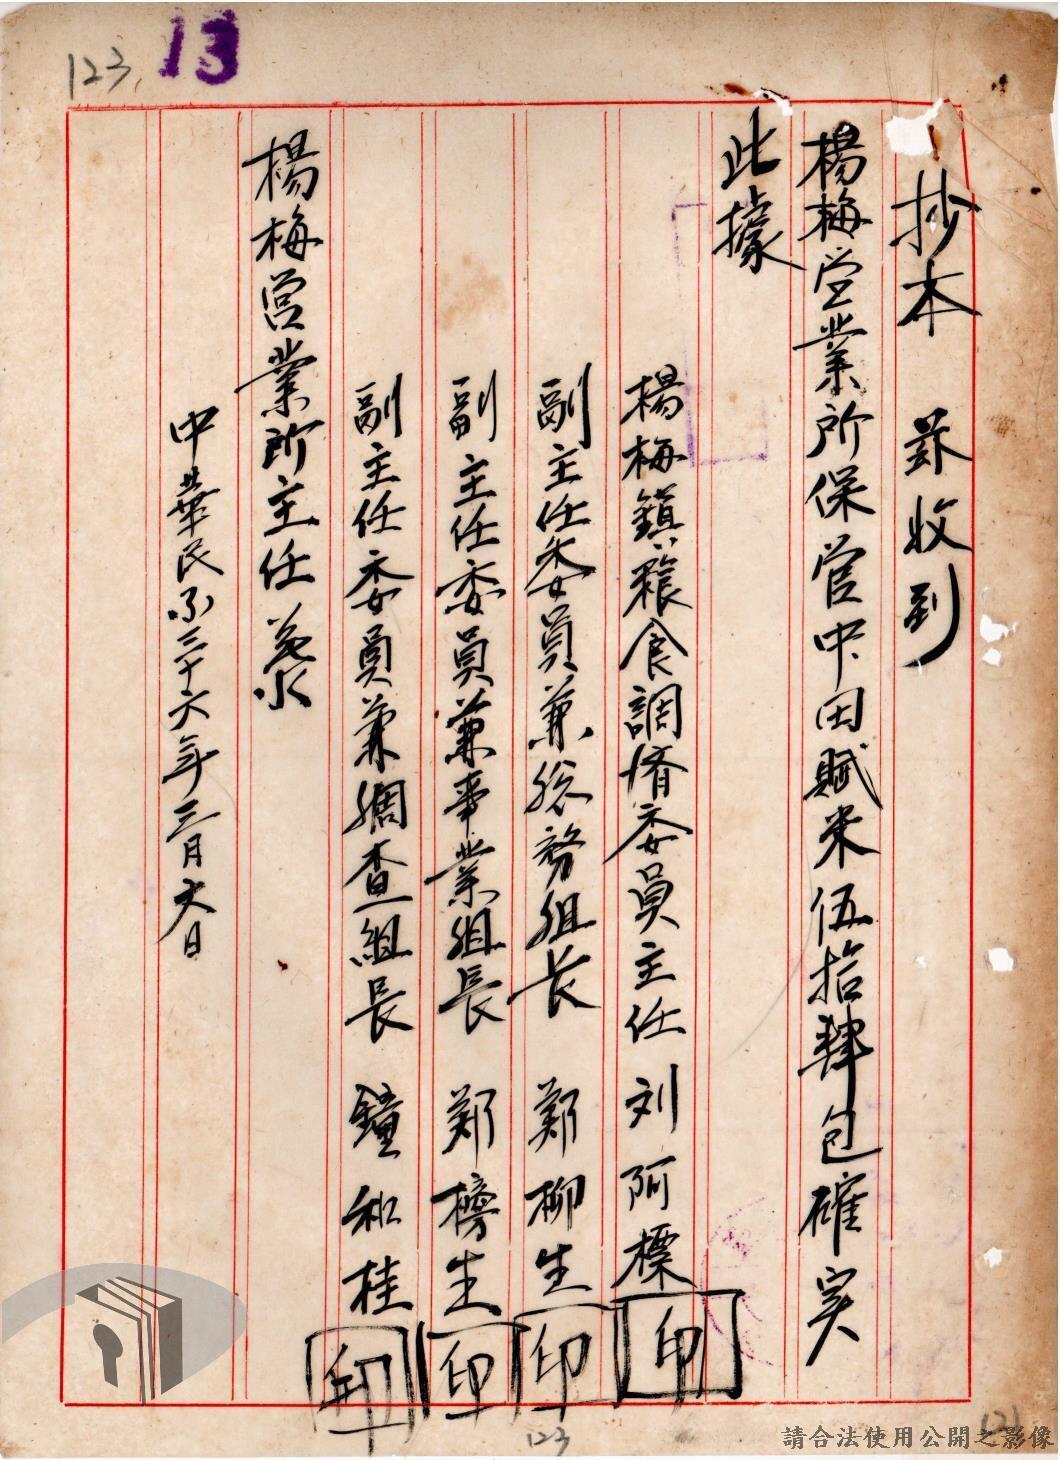 123 13
抄本 茲收到
楊梅営業所保管中田賦米伍拾肆包確实
此據
楊梅鎮粮食調済委員主任 刘阿標 印
副主任委員兼総務組长 鄭柳生 印
副主任委員兼事業組長 鄭樽生 印
副主任委員兼調查組長 鐘和桂 印
楊梅営業所主任
中華民国三十六年三月六日
123
121
請合法使用公開之影像